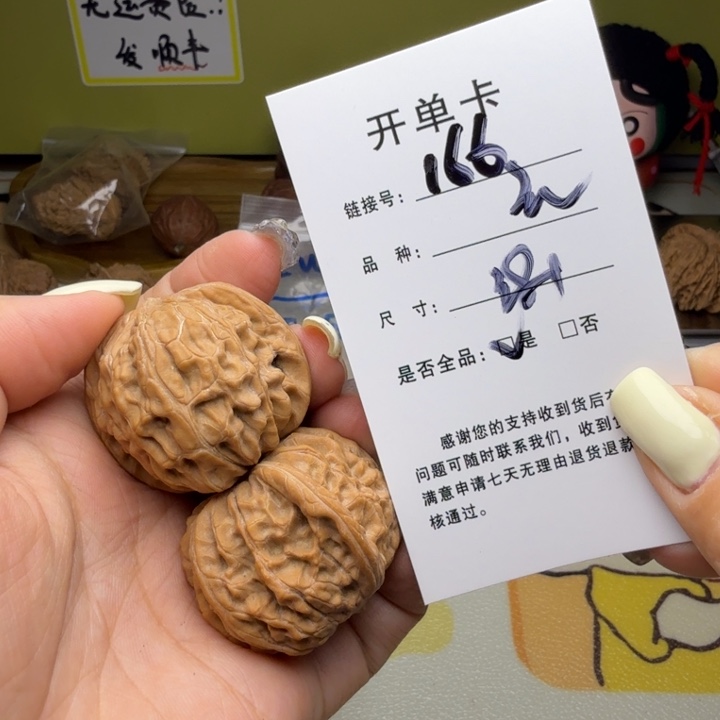 无运费险..:
发顺丰
开单卡
链接号: 166
品 种:
尺 寸:
是否全品: ☑是 □否
感谢您的支持收到货后有
问题可随时联系我们，收到
满意申请七天无理由退货退款
核通过。